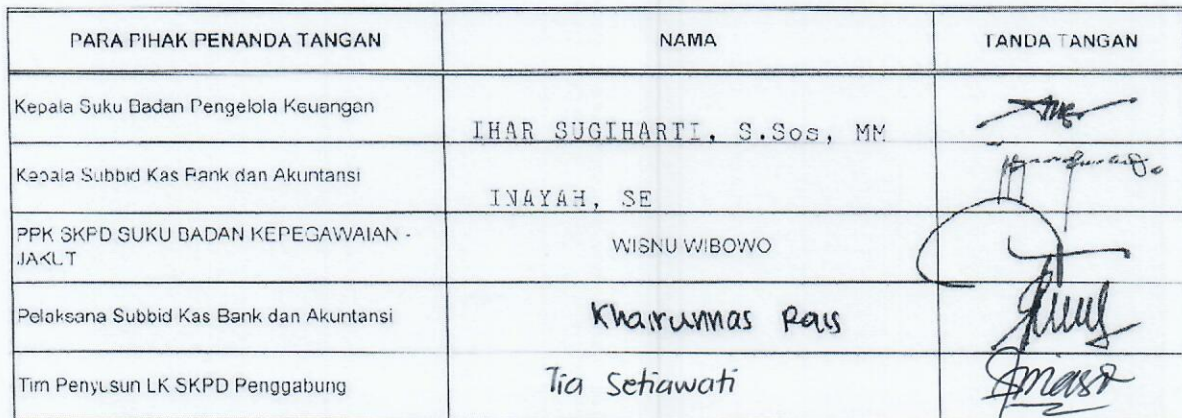 PARA PIHAK PENANDA TANGAN NAMA TANDA TANGAN
Kepala Suku Badan Pengelola Keuangan IHAR SUGIHARTI, S.Sos, MM
Kepala Subbid Kas Bank dan Akuntansi INAYAH, SE
PPK SKPD SUKU BADAN KEPEGAWAIAN - WISNU WIBOWO
JAKUT
Pelaksana Subbid Kas Bank dan Akuntansi Khairunnas Rais
Tim Penyusun LK SKPD Penggabung Tia Setiawati